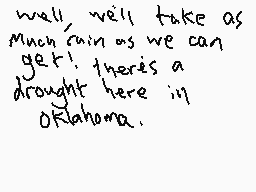 well, we'll take as
much rain as we can
get! there's a
drought here in
oklahoma.